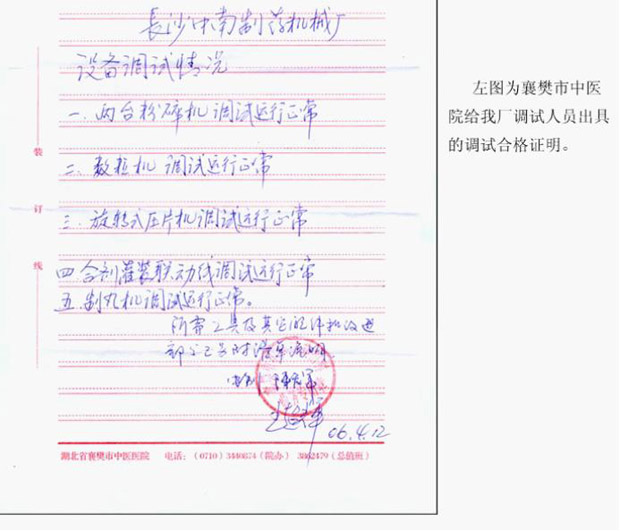 长沙中南制药机械厂
设备调试情况
一.两台粉碎机调试运行正常
二.数粒机 调试运行正常
三.旋转式压片机调试运行正常
四 合剂灌装联动线调试运行正常
五.制丸机调试运行正常。
所需工具及其它配件和改进
部分已
06.4.12
装
订
线
湖北省襄樊市中医医院 电话:(0710)3440874(院办) 3862479(总值班)
左图为襄樊市中医
院给我厂调试人员出具
的调试合格证明。